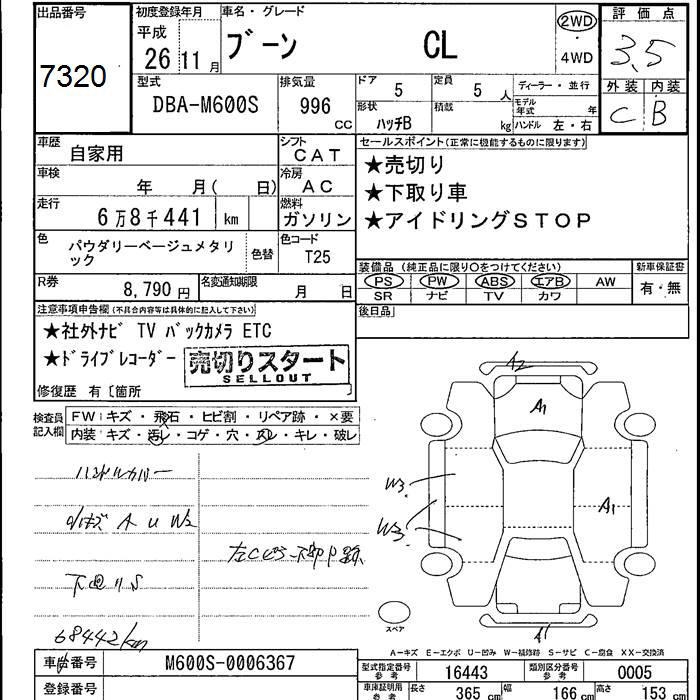 出品番号
7320
初度登録年月
平成
26 11 月
車名・グレード
ブーン CL
2WD
・
4WD
評価点
3.5
外装 内装
C B
型式
DBA-M600S
排気量
996
CC
ドア
5
定員
5 人
ディーラー・並行
形状
ハッチB
積載
kg
モデル年式 年
ハンドル 左・右
車歴
自家用
シフト
CAT
車検
年 月( 日)
冷房
AC
走行
6万8千441 km
燃料
ガソリン
色
パウダリーベージュメタリ
ック
色替
色コード
T25
R券
8,790 円
名変通知期限
月 日
セールスポイント(正常に機能するものに限ります)
★売切り
★下取り車
★アイドリングSTOP
装備品(純正品に限り○をつけてください)
PS PW ABS エアB AW
SR ナビ TV カワ
新車保証書
有・無
後日品
注意事項申告欄(不具合内容等は具体的に記入して下さい)
★社外ナビ TV バックカメラ ETC
★ドライブレコーダー
売切りスタート
SELLOUT
修復歴 有〔箇所 〕
検査員
記入欄
FW:キズ・飛石・ヒビ割・リペア跡・×要
内装:キズ・汚レ・コゲ・穴・スレ・キレ・破レ
ハンドルカバー
A U W2
下廻リS
68442km
A2
A1
W3
W3
A1
A1
スペア
A-キズ E-エクボ U-凹み W-補修跡 S-サビ C-腐食 XX-交換済
車台番号
M600S-0006367
登録番号
型式指定番号
参考
16443
類別区分番号
参考
0005
車庫証明用
参考
長さ
365 cm
幅
166 cm
高さ
153 cm